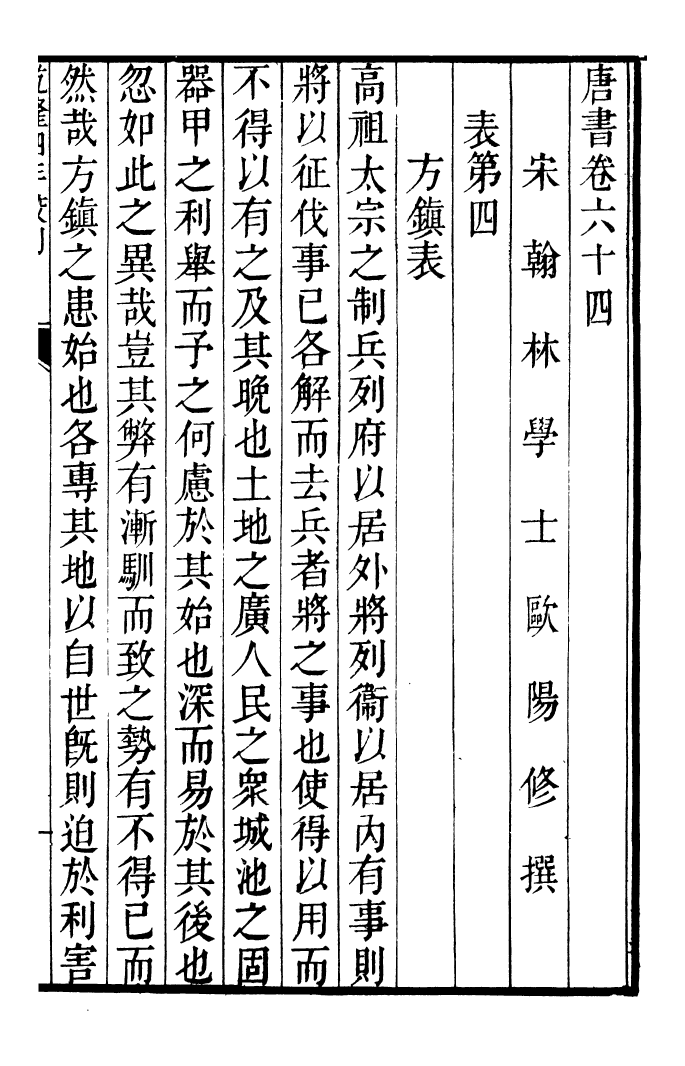 唐書卷六十四
宋翰林學士歐陽修撰
表第四
方鎮表
高祖太宗之制兵列府以居外將列衞以居內有事則
將以征伐事已各解而去兵者將之事也使得以用而
不得以有之及其晚也土地之廣人民之衆城池之固
器甲之利舉而予之何慮於其始也深而易於其後也
忽如此之異哉豈其弊有漸馴而致之勢有不得已而
然哉方鎮之患始也各專其地以自世旣則迫於利害